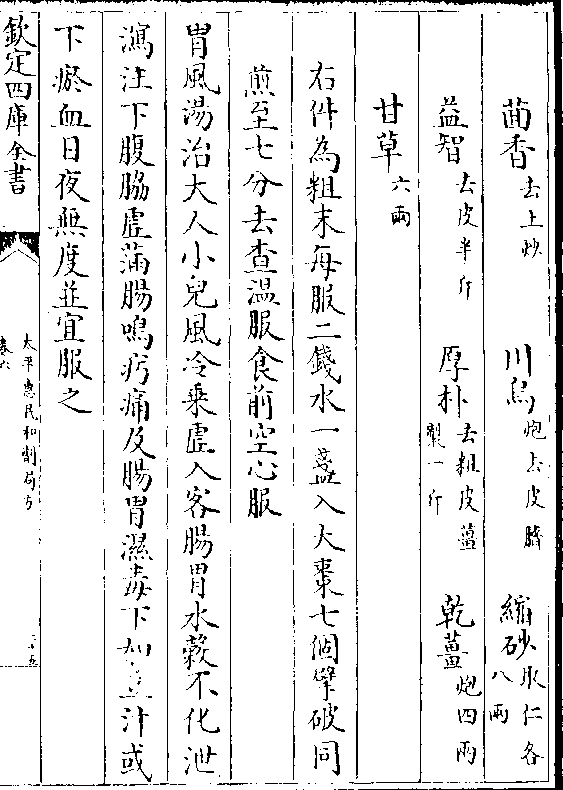 茴香去土炒 川烏炮去皮臍 縮砂取仁各八兩
益智去皮半斤 厚朴去粗皮薑製一斤 乾薑炮四兩
甘草六兩
右件為粗末每服二錢水一盞入大棗七個擘破同
煎至七分去查溫服食前空心服
胃風湯治大人小兒風冷乘虛入客腸胃水穀不化泄
瀉注下腹脇虛滿腸鳴㽲痛及腸胃濕毒下如豆汁或
下瘀血日夜無度並宜服之
欽定四庫全書
太平惠民和劑局方
卷六
二十五